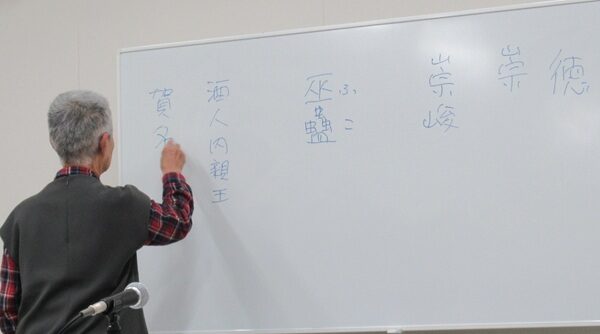 徳
崇
崇峻
ふこ
巫蠱
酒人内親王
賀